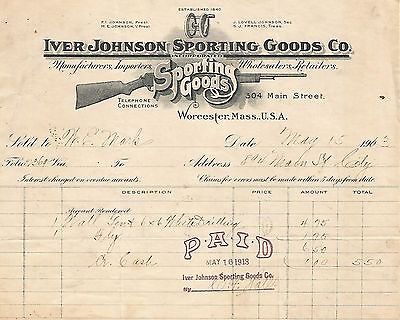 ESTABLISHED 1840
F.I. JOHNSON, Prest.
J. LOVELL JOHNSON, Sec
H.E. JOHNSON, V.Prest.
S.J. FRANCIS, Treas.
IVER JOHNSON SPORTING GOODS CO.
INCORPORATED
Manufacturers, Importers, Wholesalers, Retailers.
Sporting Goods
TELEPHONE CONNECTIONS
304 Main Street.
Worcester, Mass., U.S.A.
Sold to
Date May 15 190
Folio 360 To
Address Main St City
Interest charged on overdue accounts.
Claims for errors must be made within 5 days from date.
DESCRIPTION PRICE AMOUNT TOTAL
Account Rendered
1 Wall Tent 6x6 White Drilling 4.75
1 Fly
6.50
Cr. Cash 1.00 5.50
PAID
MAY 16 1913
Iver Johnson Sporting Goods Co.
By